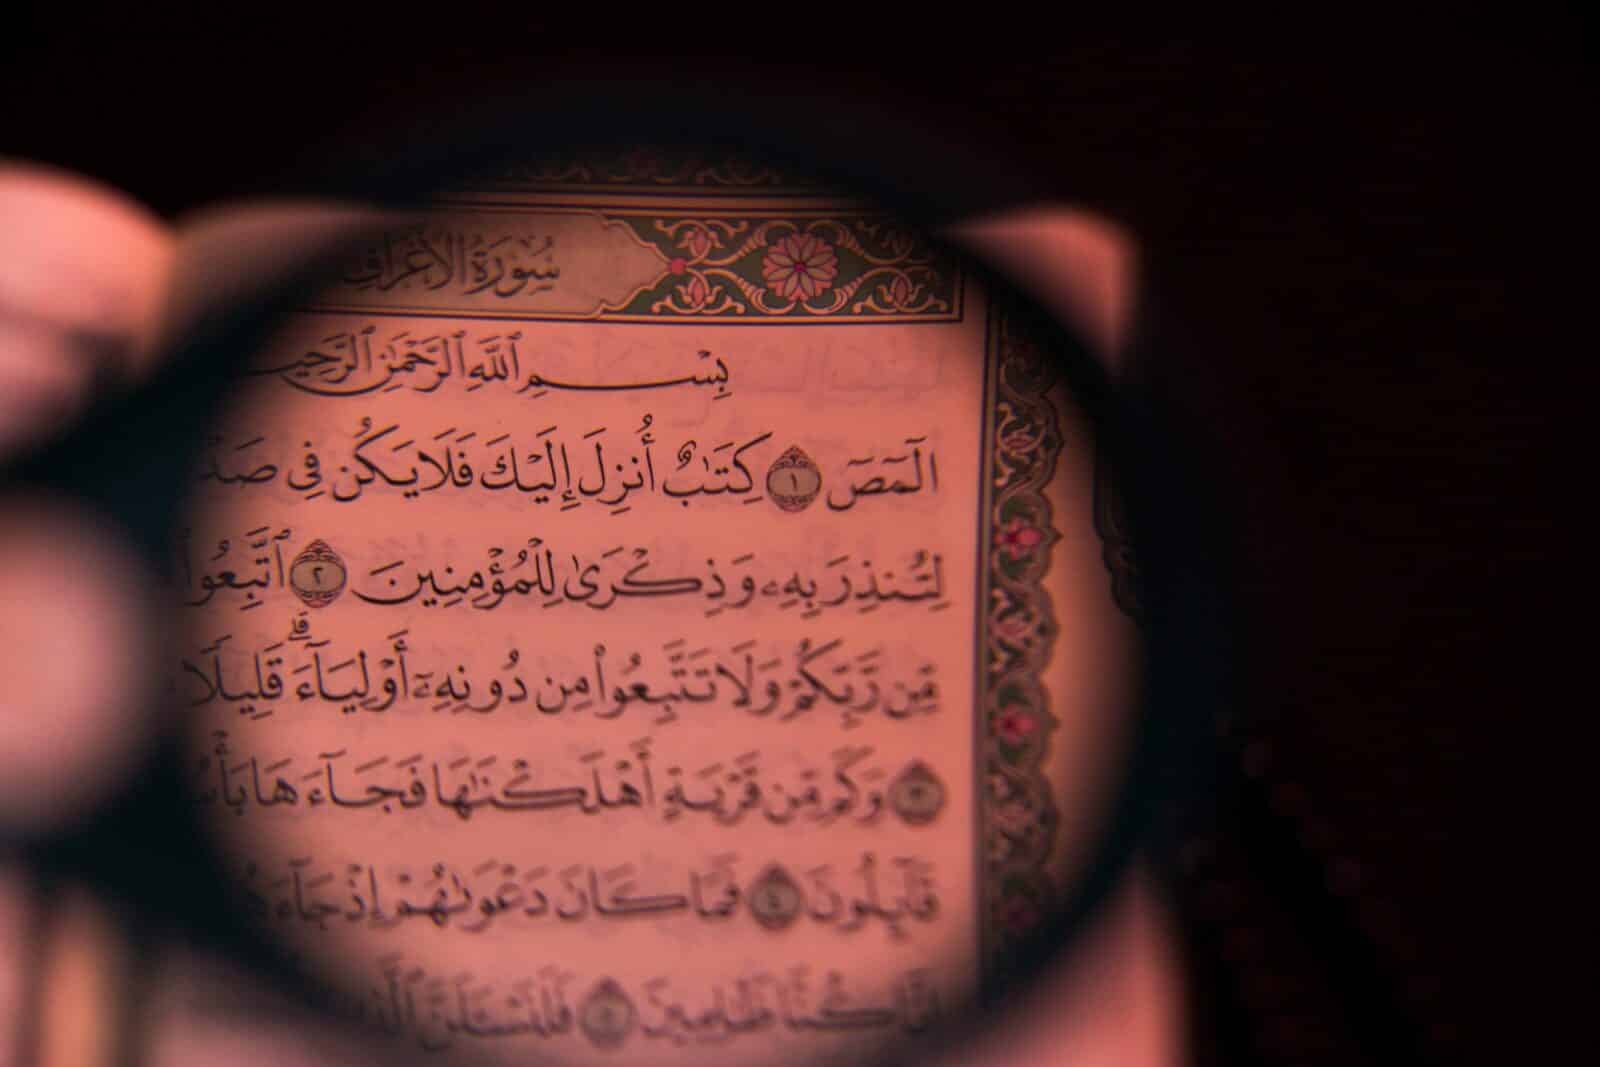 سُورَةُ الأَعْرَافِ
بِسْمِ ٱللَّهِ ٱلرَّحْمَٰنِ
الٓمٓصٓ ١ كِتَٰبٌ أُنزِلَ إِلَيْكَ فَلَا يَكُن فِى
لِتُنذِرَ بِهِۦ وَذِكْرَىٰ لِلْمُؤْمِنِينَ ٢ ٱتَّبِعُوا۟
مِّن رَّبِّكُمْ وَلَا تَتَّبِعُوا۟ مِن دُونِهِۦٓ أَوْلِيَآءَ ۗ قَلِيلًا
٣ وَكَم مِّن قَرْيَةٍ أَهْلَكْنَٰهَا فَجَآءَهَا
قَآئِلُونَ ٤ فَمَا كَانَ دَعْوَىٰهُمْ إِذْ
إِنَّا كُنَّا ظَٰلِمِينَ ٥ فَلَنَسْـَٔلَنَّ